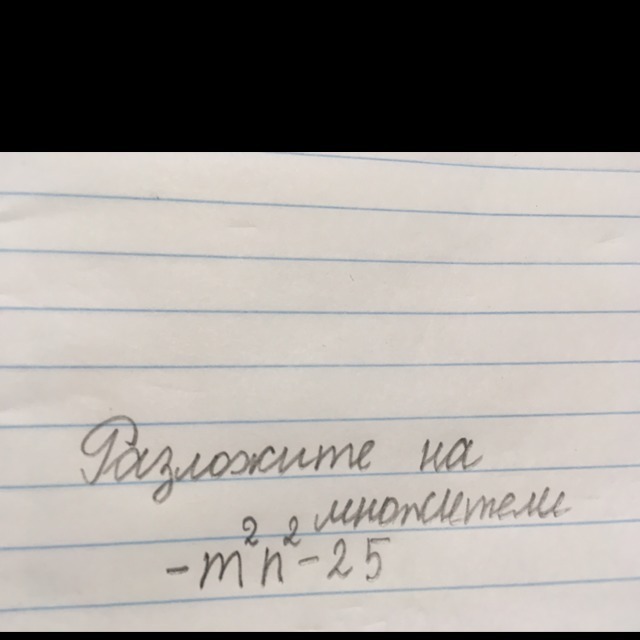 Разложите на
множители
-m²n²-25